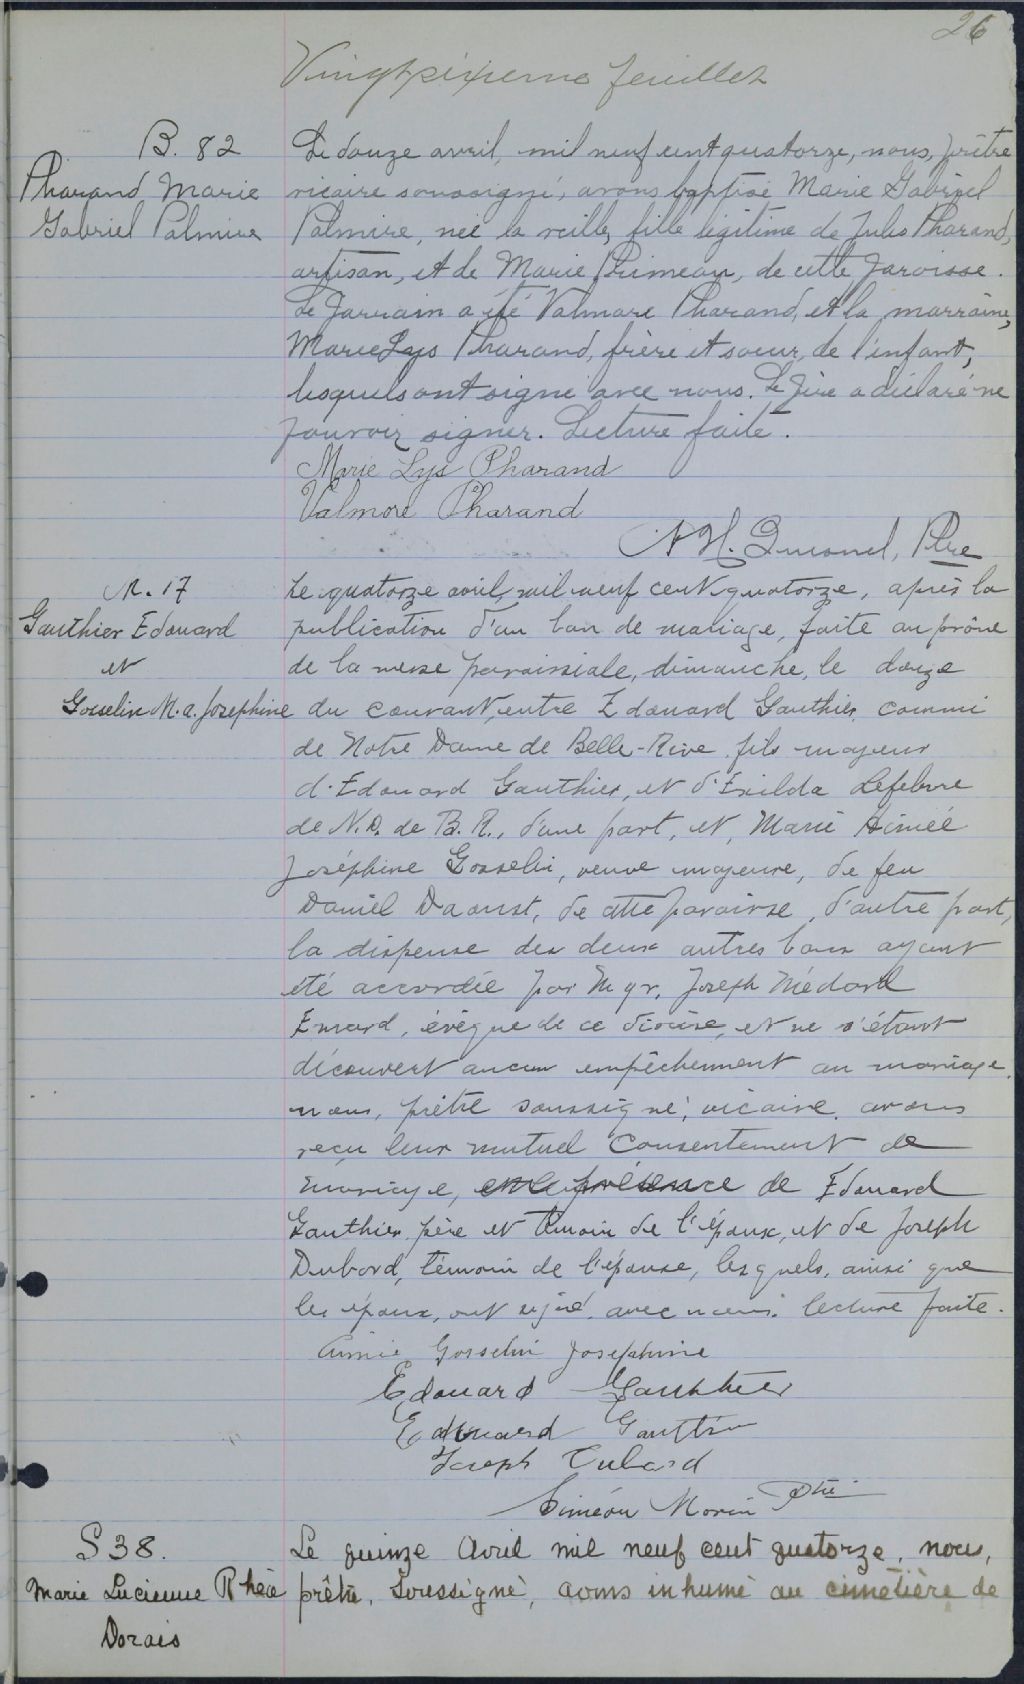 26
Vingt sixieme feuillet
B. 82
Pharand Marie
Gabriel Palmire
Le douze avril, mil neuf cent quatorze, nous, prêtre
vicaire soussigné, avons baptisé Marie Gabriel
Palmire, née la veille, fille légitime de Jules Pharand,
artisan, et de Marie Primeau, de cette paroisse.
Le parrain a été Valmore Pharand, et la marraine,
Marie Lys Pharand, frère et soeur, de l'enfant,
lesquels ont signé avec nous. Le père a déclaré ne
pouvoir signer. Lecture faite.
Marie Lys Pharand
Valmore Pharand
Ptre
M. 17
Gauthier Edouard
et
Gosselin M. a. Josephine
Le quatorze avril, mil neuf cent quatorze, après la
publication d'un ban de mariage, faite au prône
de la messe paroissiale, dimanche, le douze
du courant, entre Edouard Gauthier, commis
de Notre Dame de Belle-Rive, fils majeur
d'Edouard Gauthier, et d'Exilda Lefebvre
de N.D. de B. R., d'une part, et, Marie Aimée
Joséphine Gosselin, veuve majeure, de feu
Daniel Daoust, de cette paroisse, d'autre part,
la dispense des deux autres bans ayant
été accordée par Mgr. Joseph Médard
Emard, évêque de ce diocèse, et ne s'étant
découvert aucun empêchement au mariage,
nous, prêtre soussigné, vicaire, avons
reçu leur mutuel consentement de
mariage, en la présence de Edouard
Gauthier, père et témoin de l'époux, et de Joseph
Dubord, témoin de l'épouse, lesquels, ainsi que
les époux, ont signé avec nous. Lecture faite.
Aimée Gosselin Josephine
Edouard Gauthier
Edouard Gauthier
Joseph Dubord
Siméon Morin Ptre
S 38.
Marie Lucienne Rhéa
Dorais
Le quinze Avril mil neuf cent quatorze, nous,
prêtre, Soussigné, avons inhumé au cimetière de